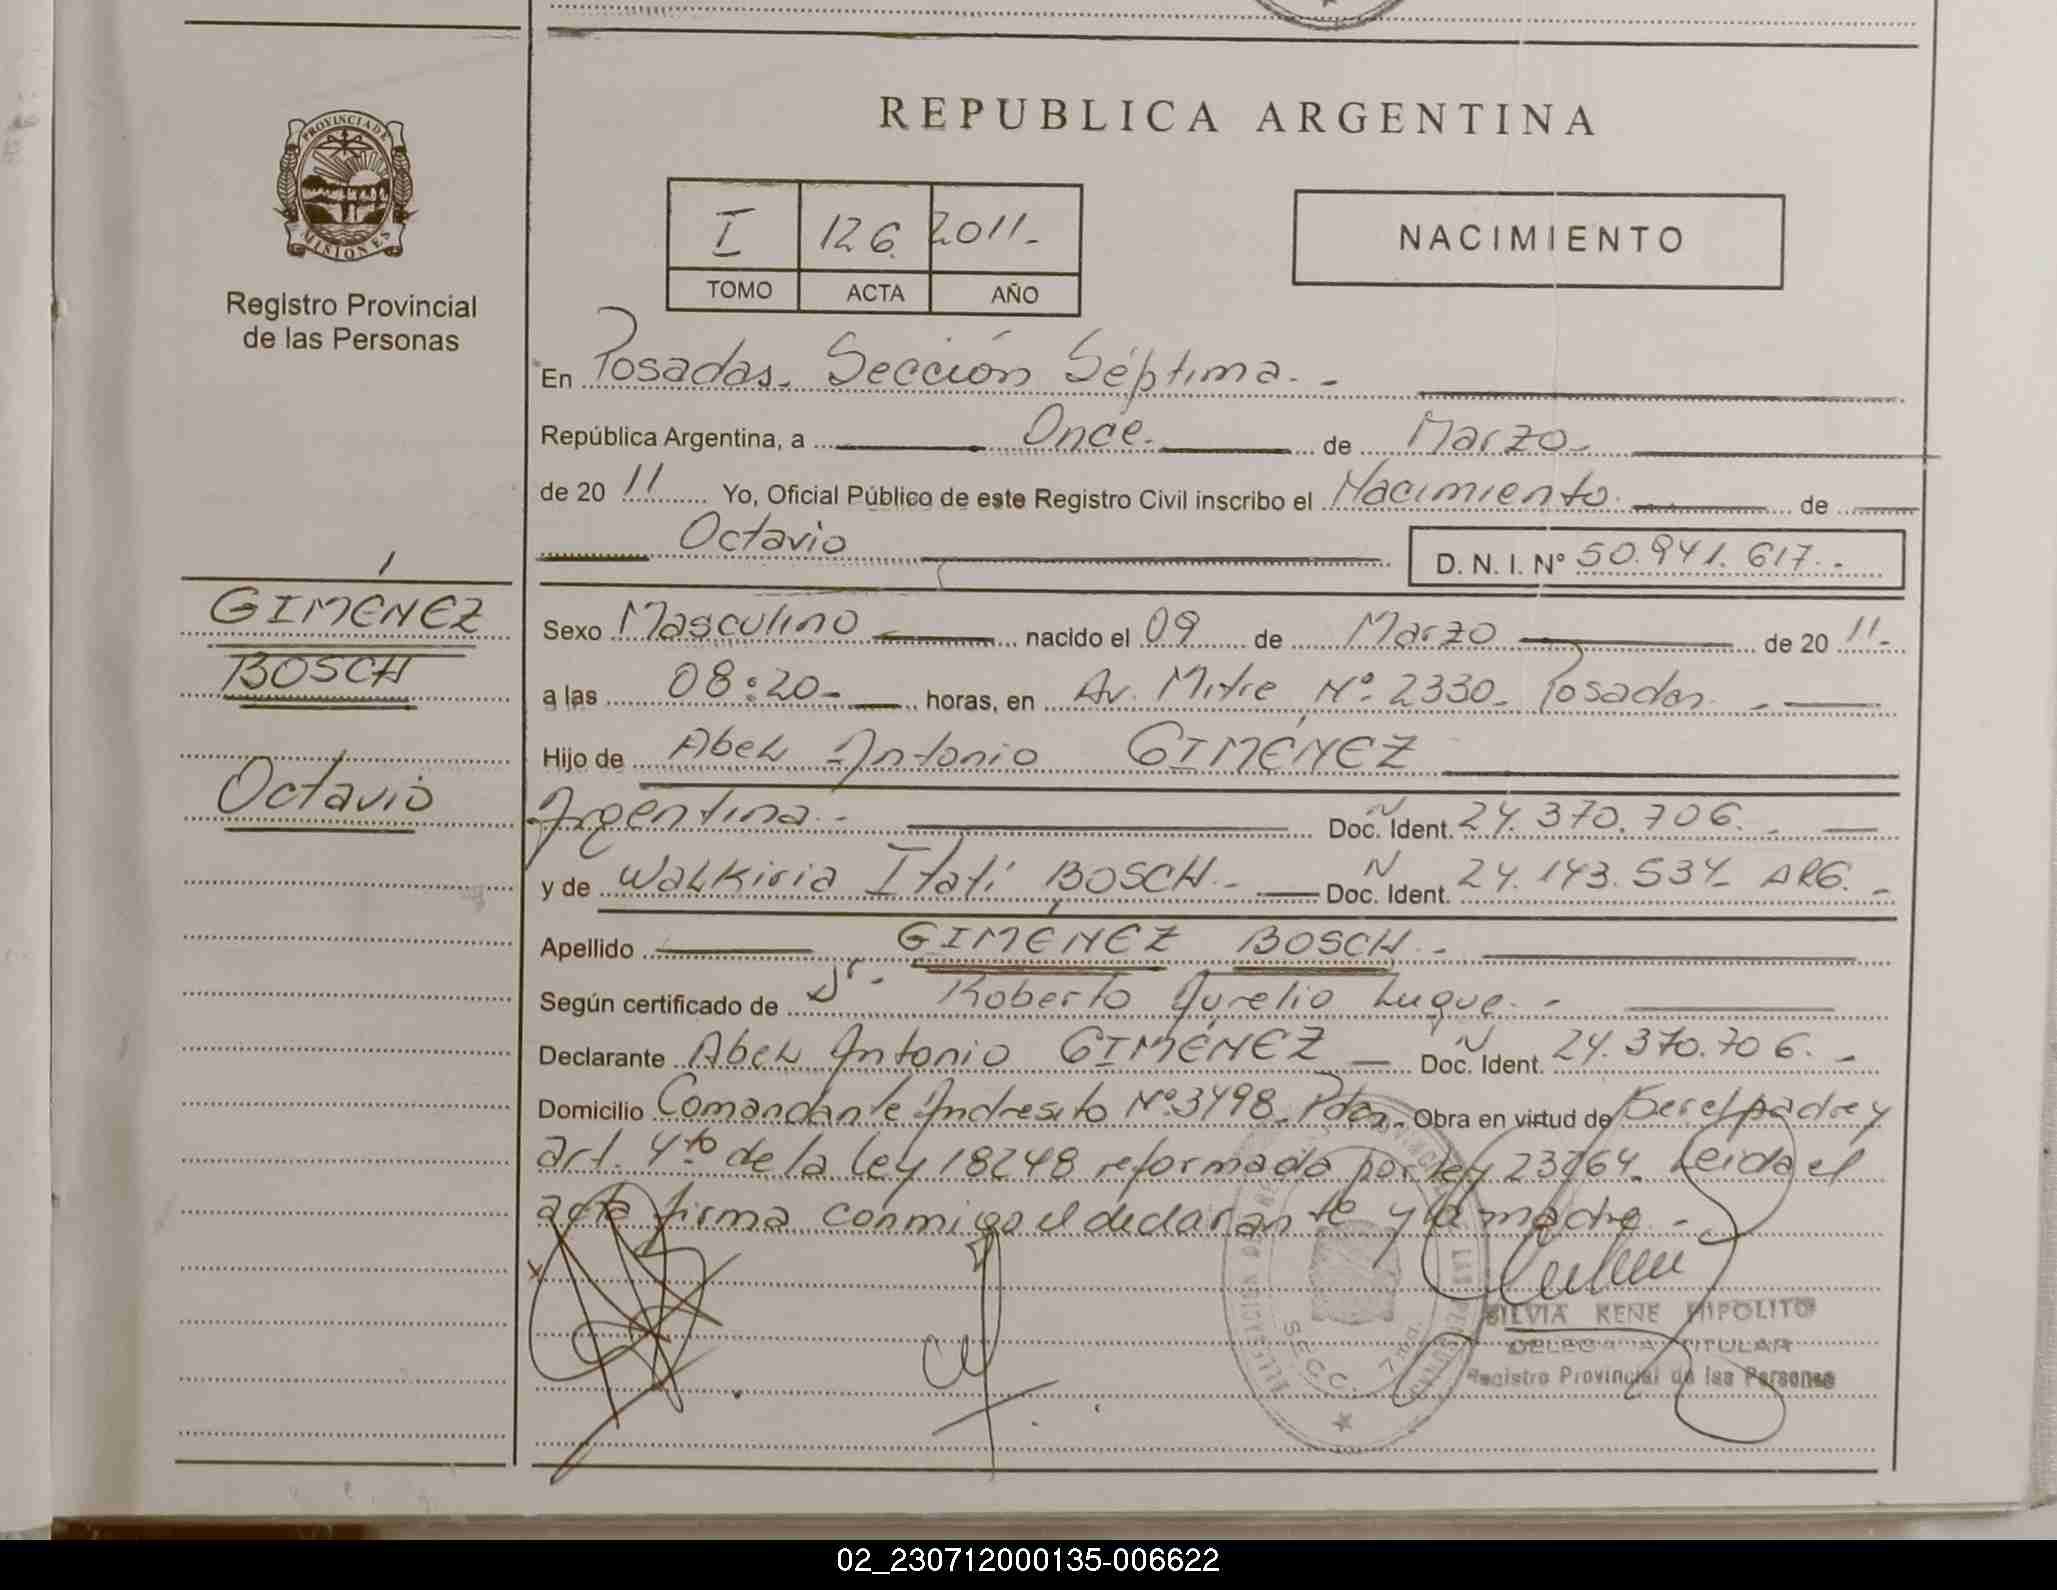 REPUBLICA ARGENTINA
PROVINCIA DE
MISIONES
Registro Provincial
de las Personas
I 126 2011.-
TOMO ACTA AÑO
NACIMIENTO
En Posadas. Sección Séptima.-
República Argentina, a Once. de Marzo.
de 20 11 Yo, Oficial Público de este Registro Civil inscribo el Nacimiento. de
Octavio
D. N. I. Nº 50.941.617.-
GIMÉNEZ
BOSCH
Octavio
Sexo Masculino nacido el 09 de Marzo de 20 11.-
a las 08:20- horas, en Av. Mitre Nº. 2330- Posadas. -
Hijo de Abel Antonio GIMÉNEZ
Argentina.- Doc. Ident. N 24.370.706. -
y de Walkiria Itatí BOSCH.- Doc. Ident. N 24.143.534- ARG. -
Apellido GIMÉNEZ BOSCH.-
Según certificado de Dr. Roberto Aurelio Luque. -
Declarante Abel Antonio GIMÉNEZ - Doc. Ident. N 24.370.706. -
Domicilio Comandante Andresito Nº 3498- Pdas.- Obra en virtud de Ser el padre y
art. 4to de la ley 18248 reformado por ley 23264. Leida el
acta firma conmigo el declarante y la madre.-
SECC. 7ma.
SILVIA RENE HIPOLITO
DELEGADA TITULAR
Registro Provincial de las Personas
02_230712000135-006622